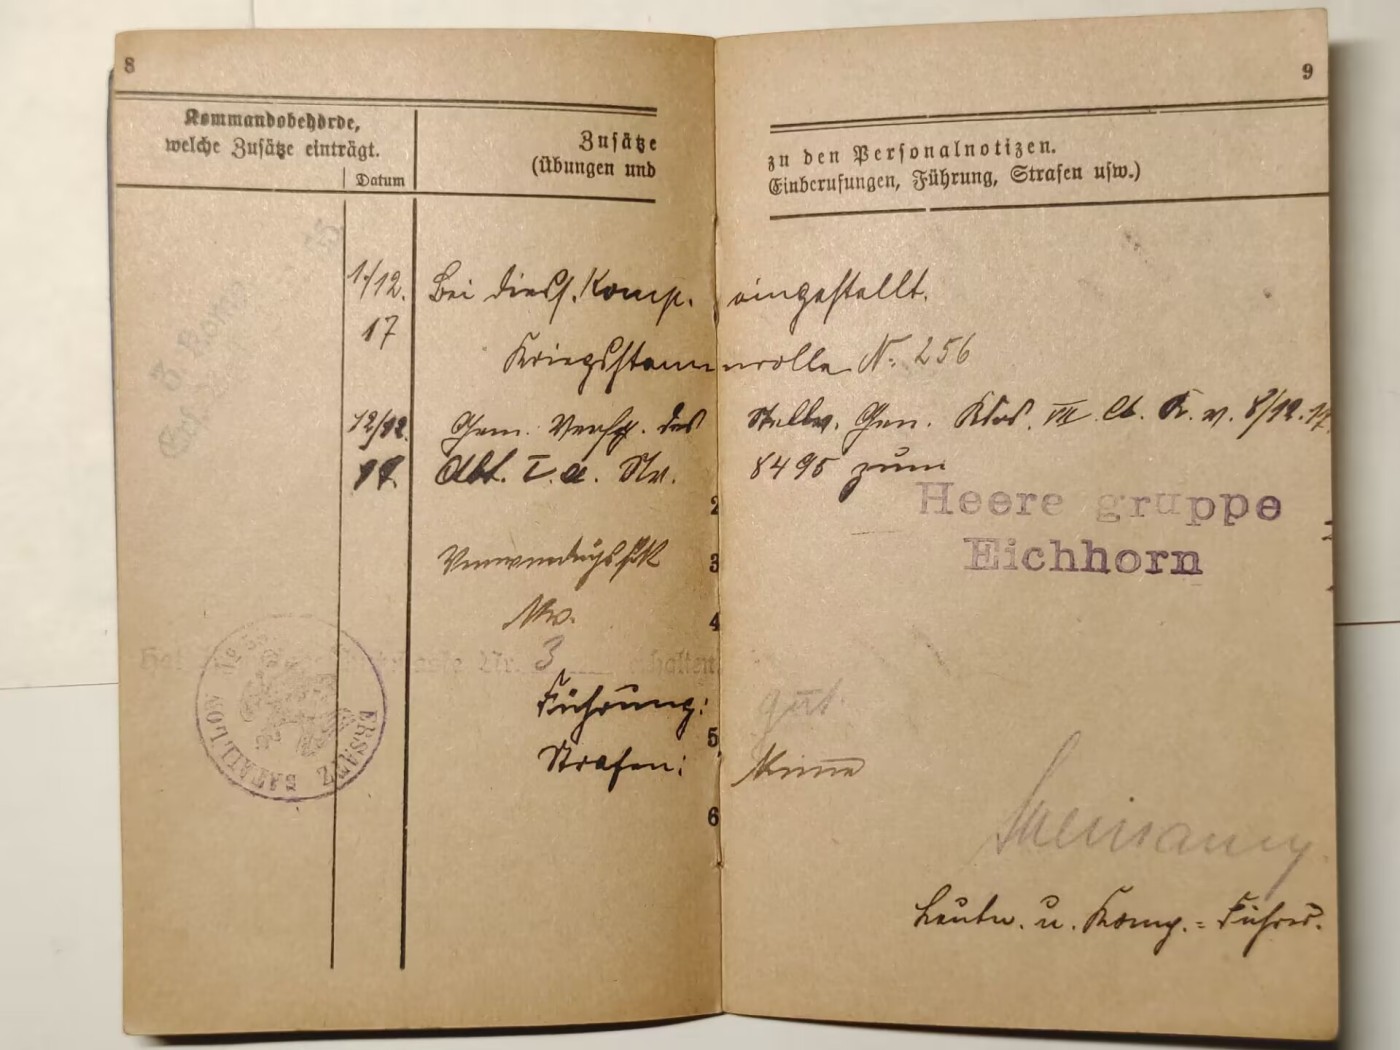 8
Kommandobehörde,
welche Zusätze einträgt.
Datum
Zusätze
(Übungen und
9
zu den Personalnotizen.
Einberufungen, Führung, Strafen usw.)
1./12. Bei diess. Komp. eingestellt.
17 Kriegsstammrolle Nr. 256
12/12. Gem. Verfg. des Stellv. Gen. Kdos. VII A. K. v. 8/12.17.
17. Abt. I. a. Nr. 8495 zum
Heere gruppe
Eichhorn
2
3
4
5
6
Nr. 3
Führung: gut
Strafen: Keine
ERSATZ BATAILLON
Leutn. u. Komp.=Führer.